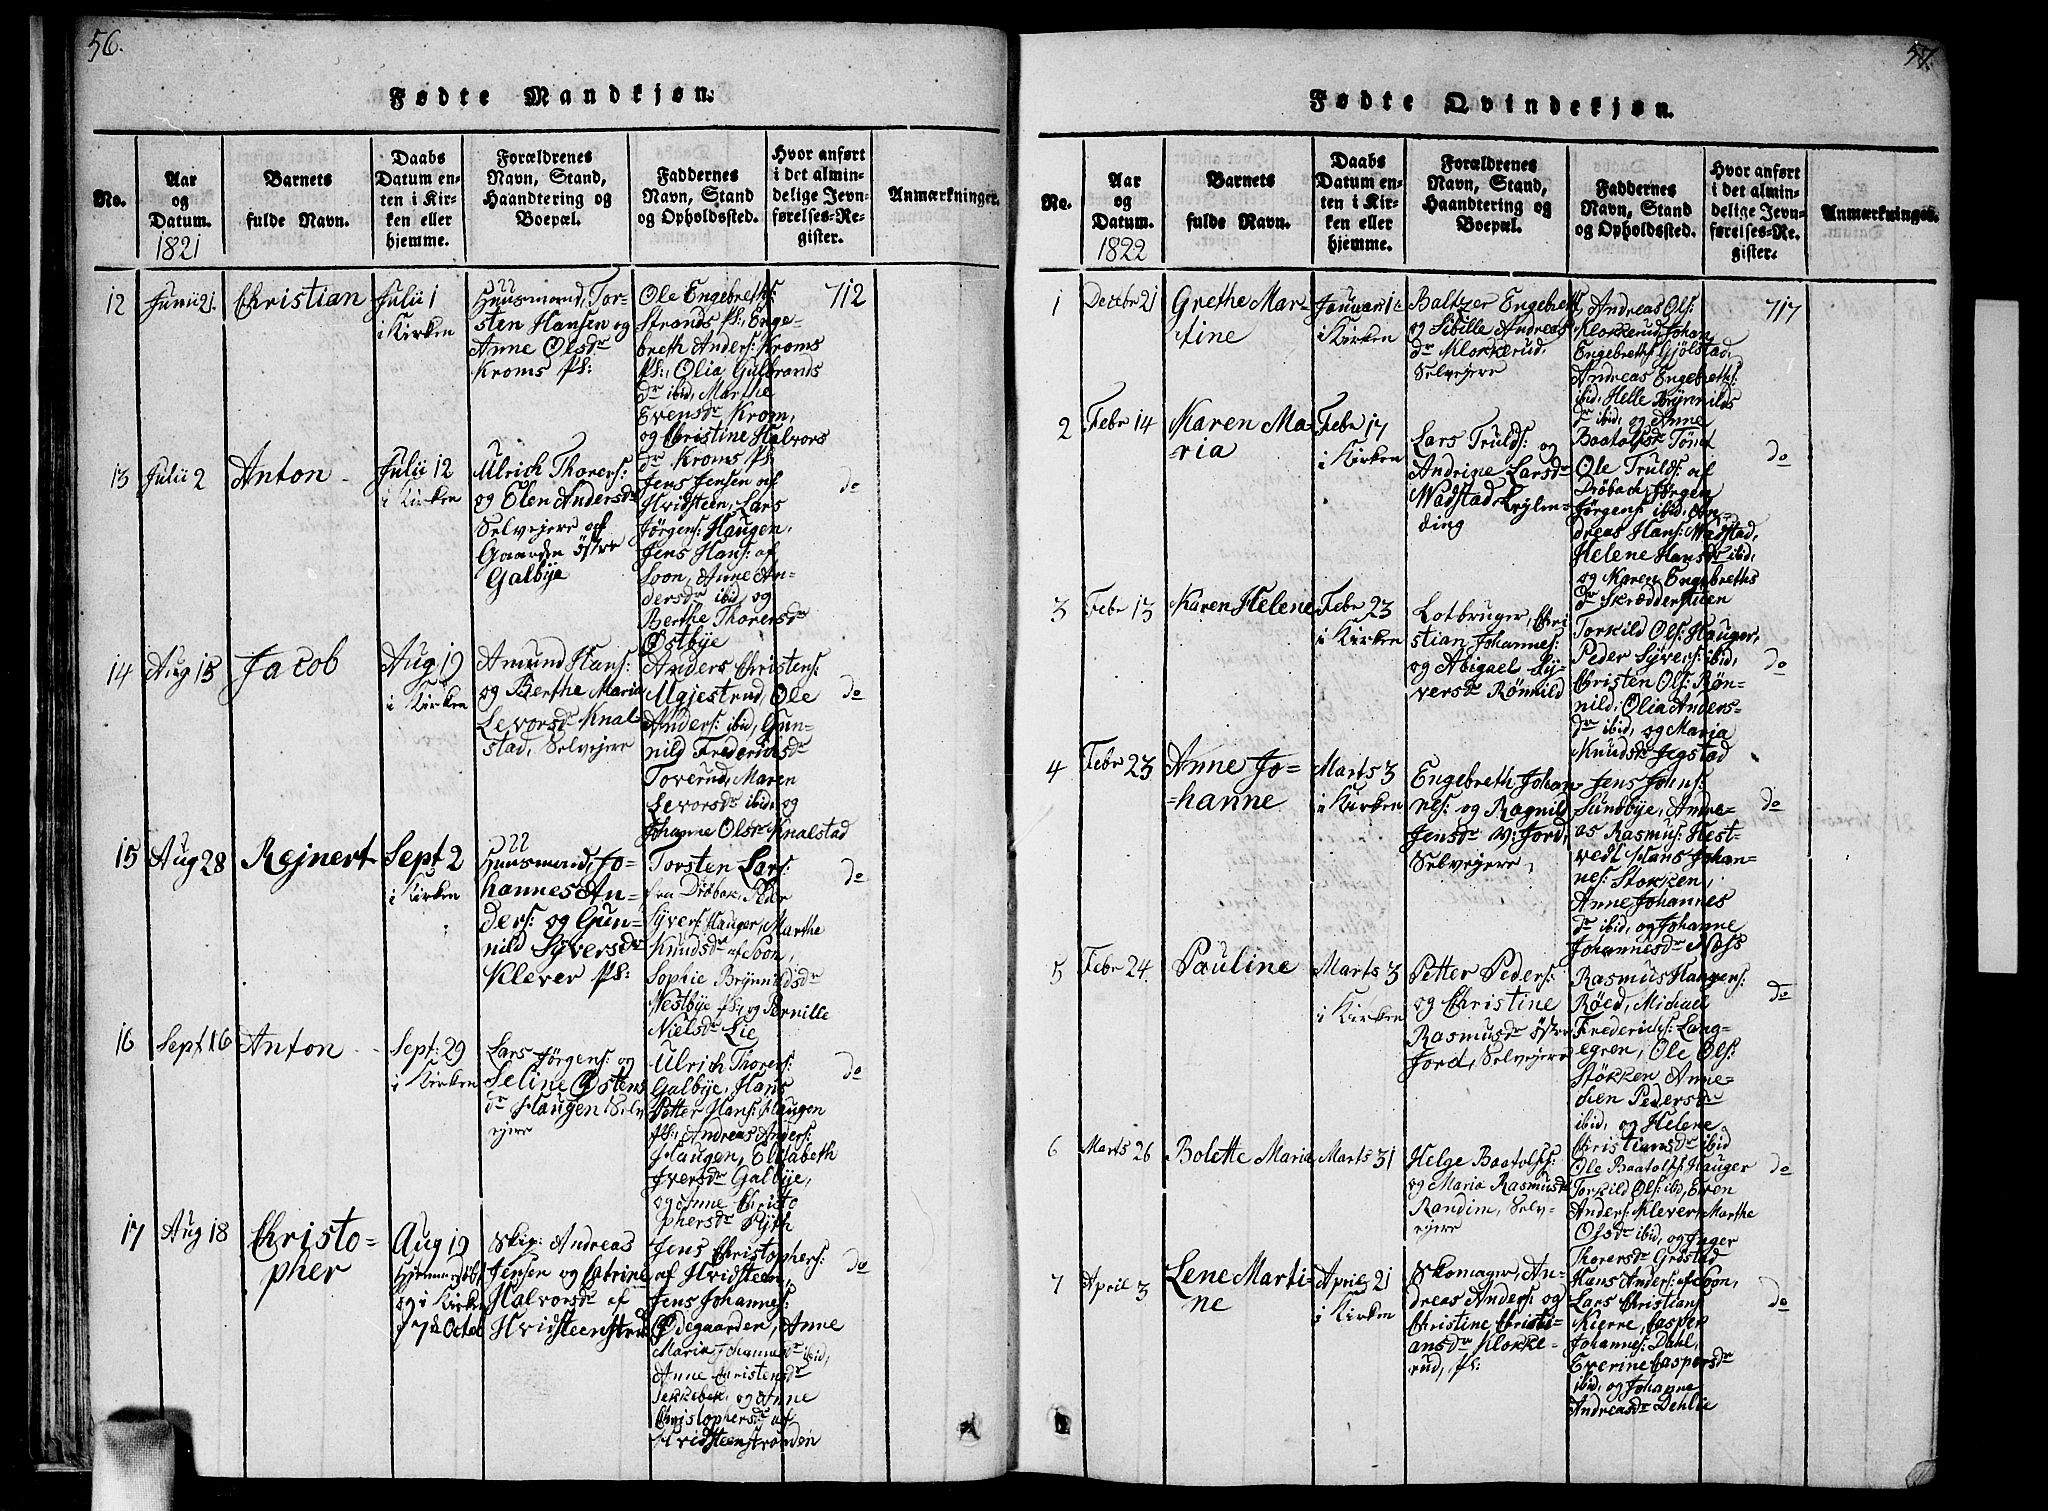 56.
Fødte Mandkjøn.
No.
Aar
og
Datum.
1821
Barnets
fulde Navn.
Daabs
Datum en-
ten i Kir-
ken eller
hjemme.
Forældrenes
Navn, Stand,
Haandtering og
Boepæl.
Faddernes
Navn, Stand
og Opholdssted.
Hvor anført
i det almin-
delige Jevn-
førelses-Re-
gister.
Anmærkninger.
12
Junii 21.
Christian
Julii 1
i Kirken
Huusmand, Tor-
sten Hansen og
Anne Olsdr
Kroms Pl:
Ole Engebreths:
Strands Pl:, Enge-
breth Anders: Kroms
Pl:, Olia Gulbrands
dr ibid, Marthe
Evensdr Krom,
og Christine Halvors
dr Kroms Pl
712
13
Julii 2
Anton
Julii 12
i Kirken
Ulrich Thorers:
og Elen Andersdr
Selvejere af
Gaarden östre
Galbye
Jens Jensen af
Hvidsteen, Lars
Jørgens: Haugen,
Jens Hans: af
Soon, Anne An-
dersdr ibid, og
Berthe Thorersdr
Østbye
do
14
Aug 15
Jacob
Aug 19
i Kirken
Amund Hans:
og Berthe Maria
Levorsdr Knal-
stad, Selvejere
Anders Christens:
Mgjestrud, Ole
Anders: ibid, Gun-
nild Fredericsdr
Toverud, Maren
Levorsdr ibid, og
Johanne Olsdr Knalstad
do
15
Aug 28
Rejnert
Sept 2
i Kirken
Huusmand, Jo-
hannes An-
ders: og Gun-
nild Syversdr
Klever Pl:
Torsten Lars:
fra Dröbak, Peder
Syvers: Hauger, Marthe
Knudsdr af Soon,
Sophie Brynnildsdr
Westbye Pl, og Pernille
Nielsdr Lie
do
16
Sept 16
Anton
Sept: 29
i Kirken
Lars Jørgens: og
Seline Østens
dr Haugen, Selv
ejere
Ulrich Thorers:
Galbye, Hans
Petter Hans: Haugen
Pl:, Andreas Anders:
Haugen, Elisabeth
Iversdr Galbye,
og Anne Christo
phersdr Ryth
do
17
Aug 18
Christo-
pher
Aug 19
Hjemmedöbt
og i Kirken
d 7de Octob
Skip: Andreas
Jensen og Catrine
Halvorsdr af
Hvidsteenstrand
Jens Christophers:
af Hvidsteen,
Jens Johannes:
Ødegaarden, Anne
Maria Johannesdr ibid,
Anne Christensdr
og Anne
Christophersdr af
Hvidsteenstranden
do
57.
Fødte Qvindekjøn.
No.
Aar
og
Datum.
1822
Barnets
fulde Navn.
Daabs
Datum en-
ten i Kir-
ken eller
hjemme.
Forældrenes
Navn, Stand,
Haandtering og
Boepæl.
Faddernes
Navn, Stand
og Opholdssted.
Hvor anført
i det almin-
delige Jevn-
førelses-Re-
gister.
Anmærkninger.
1
Decebr 21
Grethe Mar-
tine
Januari 1
i Kirken
Baltzer Engebreths,
og Sibille Andreas
dr Klokkerud,
Selvejere
Andreas Ols:
Klokkerud, Johan
Engebreths: Gjölstad,
Andreas Engebreths:
ibid, Helle Brynnilds
dr ibid, og Anne
Baatolfsdr Tömt
717
2
Febr 14
Karen Ma-
ria
Febr 17
i Kirken
Lars Truls: og
Andrine Larsdr
Wadstad Lejlen-
ding
Ole Truls: af
Dröbach, Jørgen
Jørgens: ibid, An-
dreas Hans: Wadstad,
Helene Hansdr ibid,
og Karen Engebreths
dr Skræddерstuen
do
3
Febr 13
Karen Helene
Febr 23
i Kirken
Lotbruger, Chri
stian Johannes:
og Abigael Sy-
versdr Römnild
Torkild Ols: Hauger,
Peder Syvers: ibid,
Christen Ols: Røm-
nild, Olia Anders-
dr ibid, og Maria
Knudsdr Jegstad
do
4
Febr 23
Anne Jo-
hanne
Marts 3
i Kirken
Engebreth Johan-
nes: og Ragnild
Jensdr V: Jord,
Selvejere
Jens Johns:
Sundbye, Andre-
as Rasmus: Hest-
vedt, Hans Johan-
nes: Stokken,
Anne Johannes
dr ibid, og Johanne
Johannesdr Næs
do
5
Febr 24.
Pauline
Marts 3
i Kirken
Petter Peders:
og Christine
Rasmusdr östre
Jord, Selvejere
Rasmus Haagens:
Röed, Michael
Frederichs: Lang-
egren, Ole Ols:
Stökken, Anne-
chen Pedersdr
ibid, og Helene
Christiansdr ibid
do
6
Marts 26
Bolette Maria
Marts 31
Helge Baatolfs:
og Maria Rasmusdr
Randim, Selv-
ejere
Ole Baatolfs: Hauger
Torkild Ols: ibid, Even
Anders: Klever, Marthe
Olsdr ibid, og Inger
Thorersdr Gröstad
do
7
April 3
Lene Marti-
ne
April 21
i Kirken
Skomager, An-
dreas Anders: og
Christine Christi-
ansdr Klokke-
rud, Pl:
Hans Anders: af Soon,
Lars Christians:
Kierre, Casper
Johannes: Dahl,
Everine Caspersdr
ibid, og Johanne
Andreasdr Dehlie
do